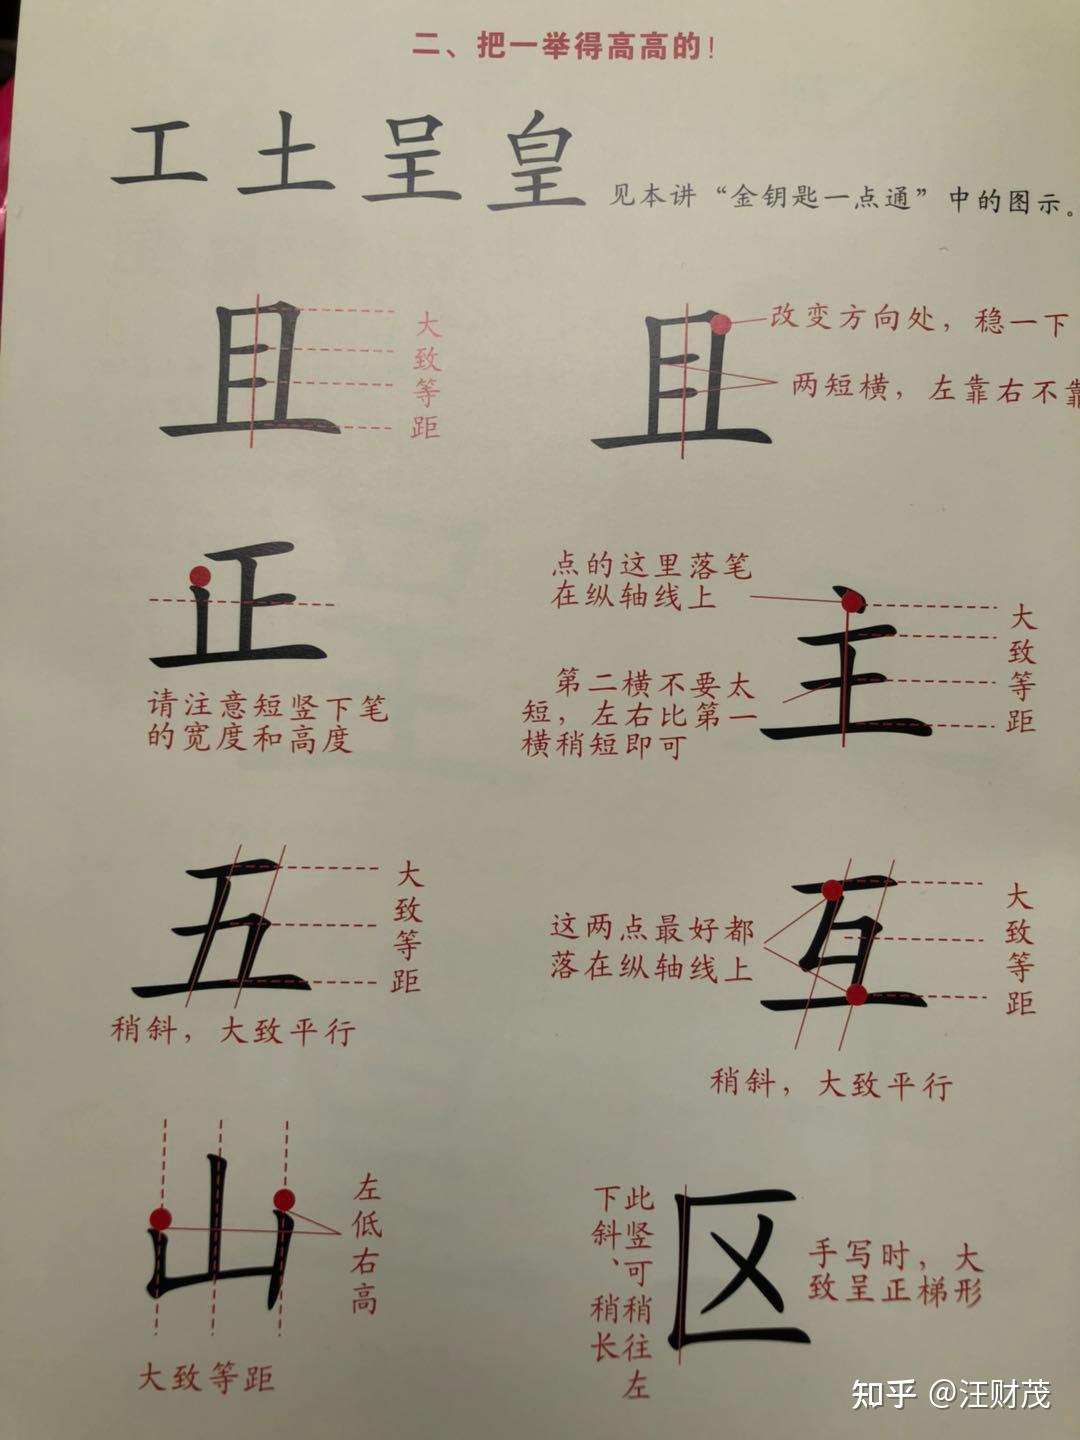 二、把一举得高高的！
工土呈皇 见本讲“金钥匙一点通”中的图示。
且
大致等距
且
改变方向处，稳一下
两短横，左靠右不靠
正
请注意短竖下笔
的宽度和高度
点的这里落笔
在纵轴线上
第二横不要太
短，左右比第一
横稍短即可
主
大致等距
五
大致等距
稍斜，大致平行
这两点最好都
落在纵轴线上
互
大致等距
稍斜，大致平行
山
左低右高
大致等距
此竖可稍往左
下斜、稍长
区
手写时，大
致呈正梯形
知乎 @汪财茂